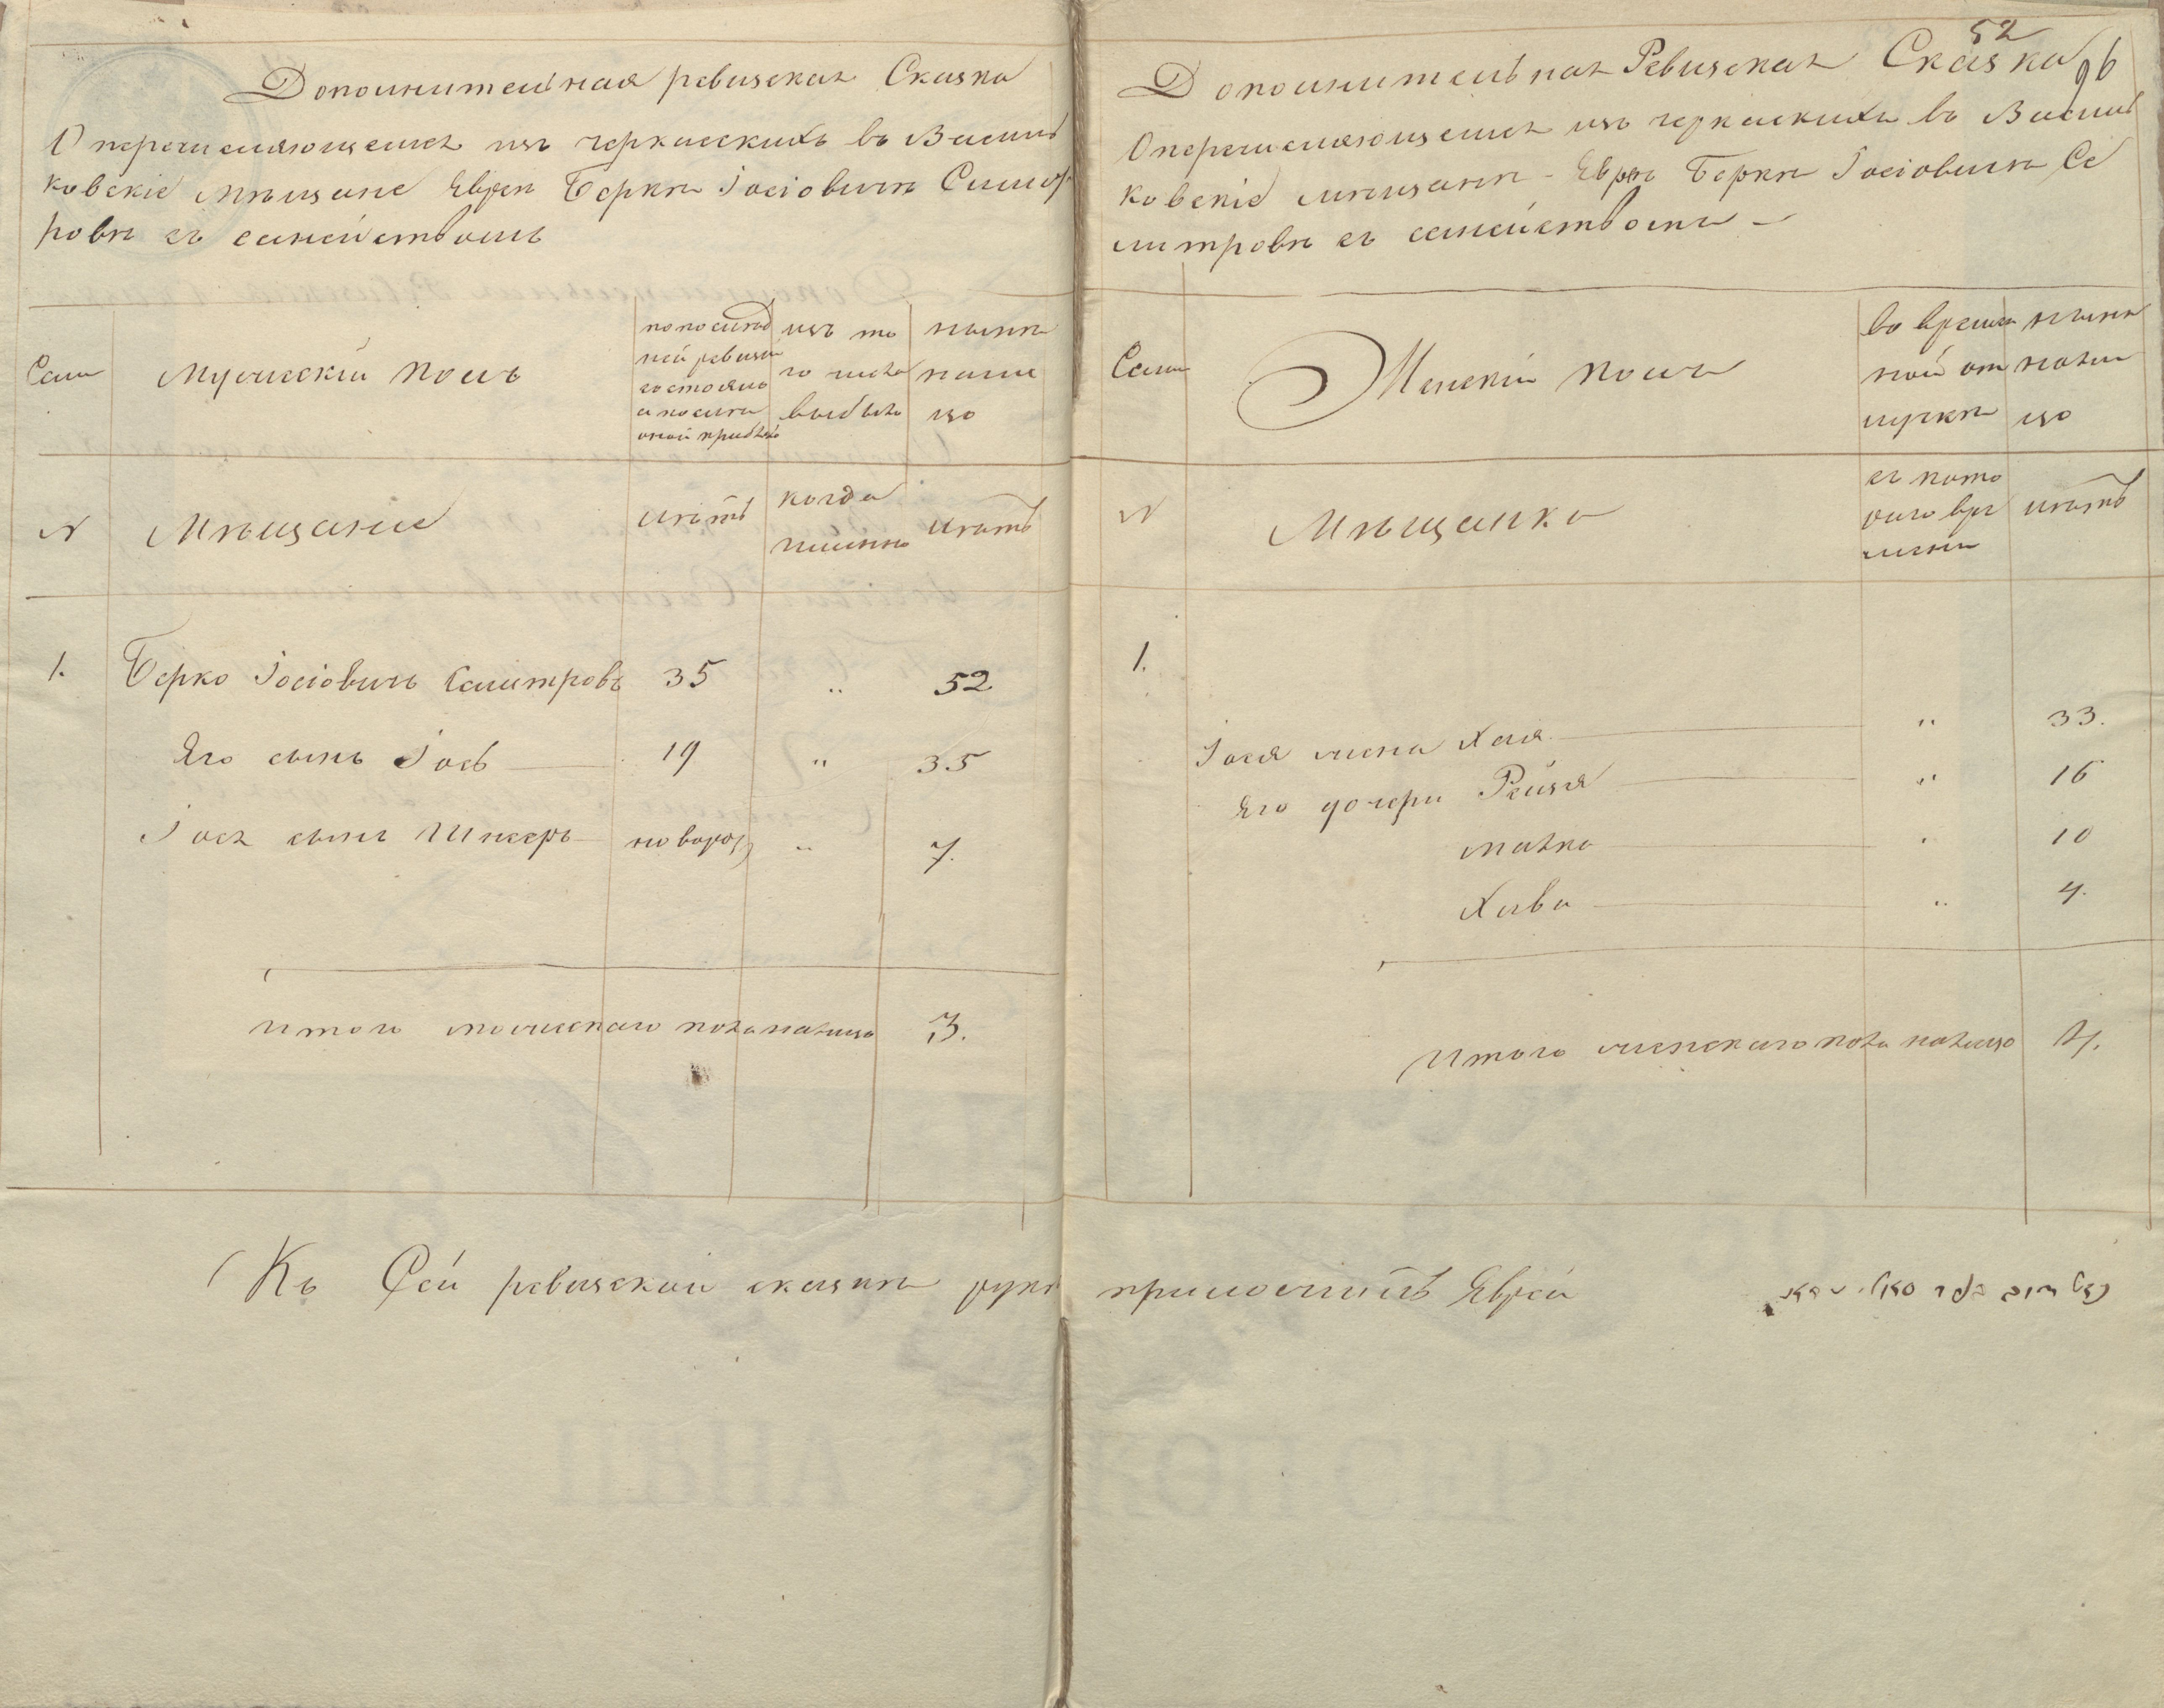 Дополнительная ревизская Сказка
О перечисляющемся изъ черкаскихъ въ Василь
ковскіе мѣщане Еврея Берки Іосіовича Силит
ровѣ съ семействомъ
Семи
Мужескій полъ
по послѣд
ней ревизіи
состояло
и послѣ
оной прибыло
изъ то
го числа
выбыло
нынѣ
на ли
цо
N
Мѣщане
Лѣтъ
когда
именно
Лѣтъ
1.
Берко Іосіовичь Селитровъ 35 „ 52
Его сынъ Іось 19 „ 35
Іося сынъ Шнееръ новорож „ 7.
Итого мужескаго пола налицо 3.
Къ Сей ревизской сказкѣ руку
52
96
Дополнительная Ревизская Сказка
О перечисляющемся изъ черкаскихъ въ Василь
ковскіе мѣщане Еврѣя Берки Іосіовича Се
литровѣ съ семействомъ
Семи
Женскій полъ
во времен
ной от
лучкѣ
нынѣ
на ли
цо
N
Мѣщанки
съ кото
раго вре
мени
лѣтъ
1.
Іося жена Хая „ 33.
Его дочери Рейзя „ 16
Малка „ 10
Хава „ 4.
Итого женскаго пола налицо 4.
приложилъ Еврей